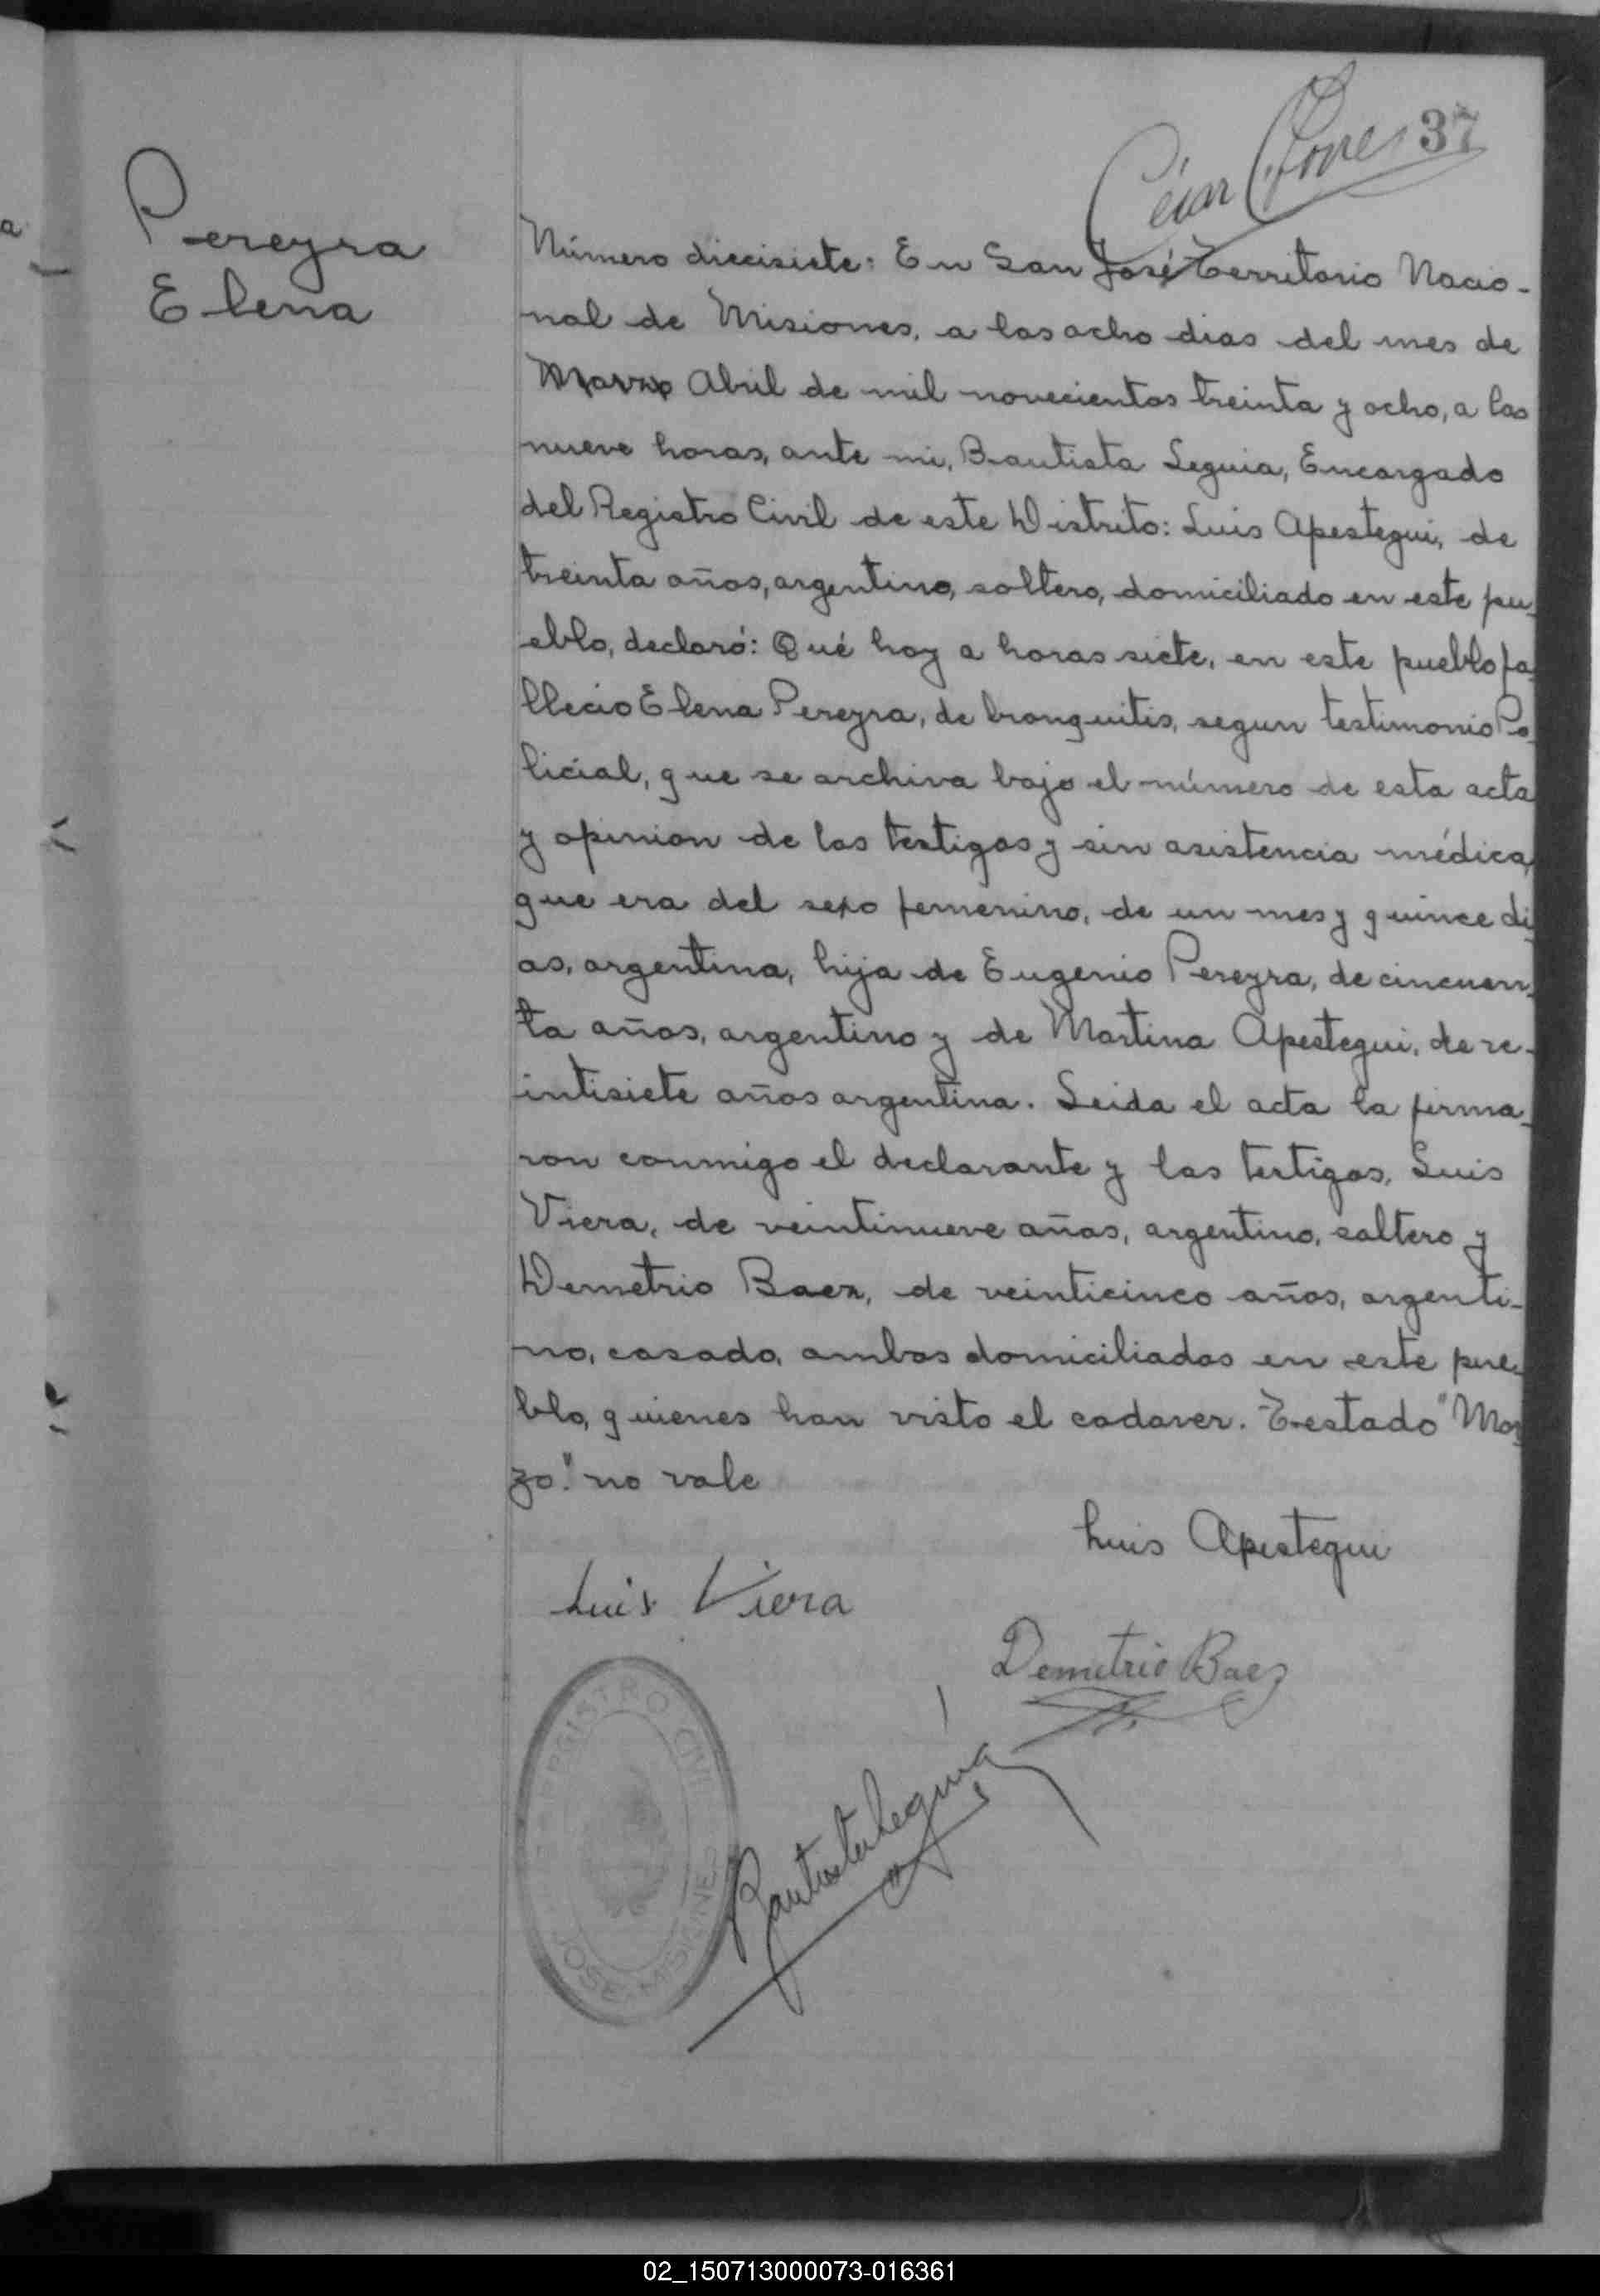 César
37
Pereyra
Elena
Número diecisiete: En San José Territorio Nacio-
nal de Misiones, a los ocho dias del mes de
Marzo Abril de mil novecientos treinta y ocho, a las
nueve horas, ante mi, Bautista Seguia, Encargado
del Registro Civil de este Distrito: Luis Apestegui, de
treinta años, argentino, soltero, domiciliado en este pu-
eblo, declaró: Qué hoy a horas siete, en este pueblo fa-
llecio Elena Pereyra, de bronquitis, segun testimonio Po-
licial, que se archiva bajo el número de esta acta
y opinion de los testigos y sin asistencia médica,
que era del sexo femenino, de un mes y quince di-
as, argentina, hija de Eugenio Pereyra, de cincuen-
ta años, argentino y de Martina Apestegui, de ve-
intisiete años argentina. Leida el acta la firma-
ron conmigo el declarante y los testigos, Luis
Viera, de veintinueve años, argentino, soltero y
Demetrio Baez, de veinticinco años, argenti-
no, casado, ambos domiciliados en este pue-
blo, quienes han visto el cadaver. Testado "Mar-
zo". no vale
Luis Apestegui
Luis Viera
Demetrio Baez
Bautista Seguia
REGISTRO CIVIL
JOSE - MISIONES
02_150713000073-016361